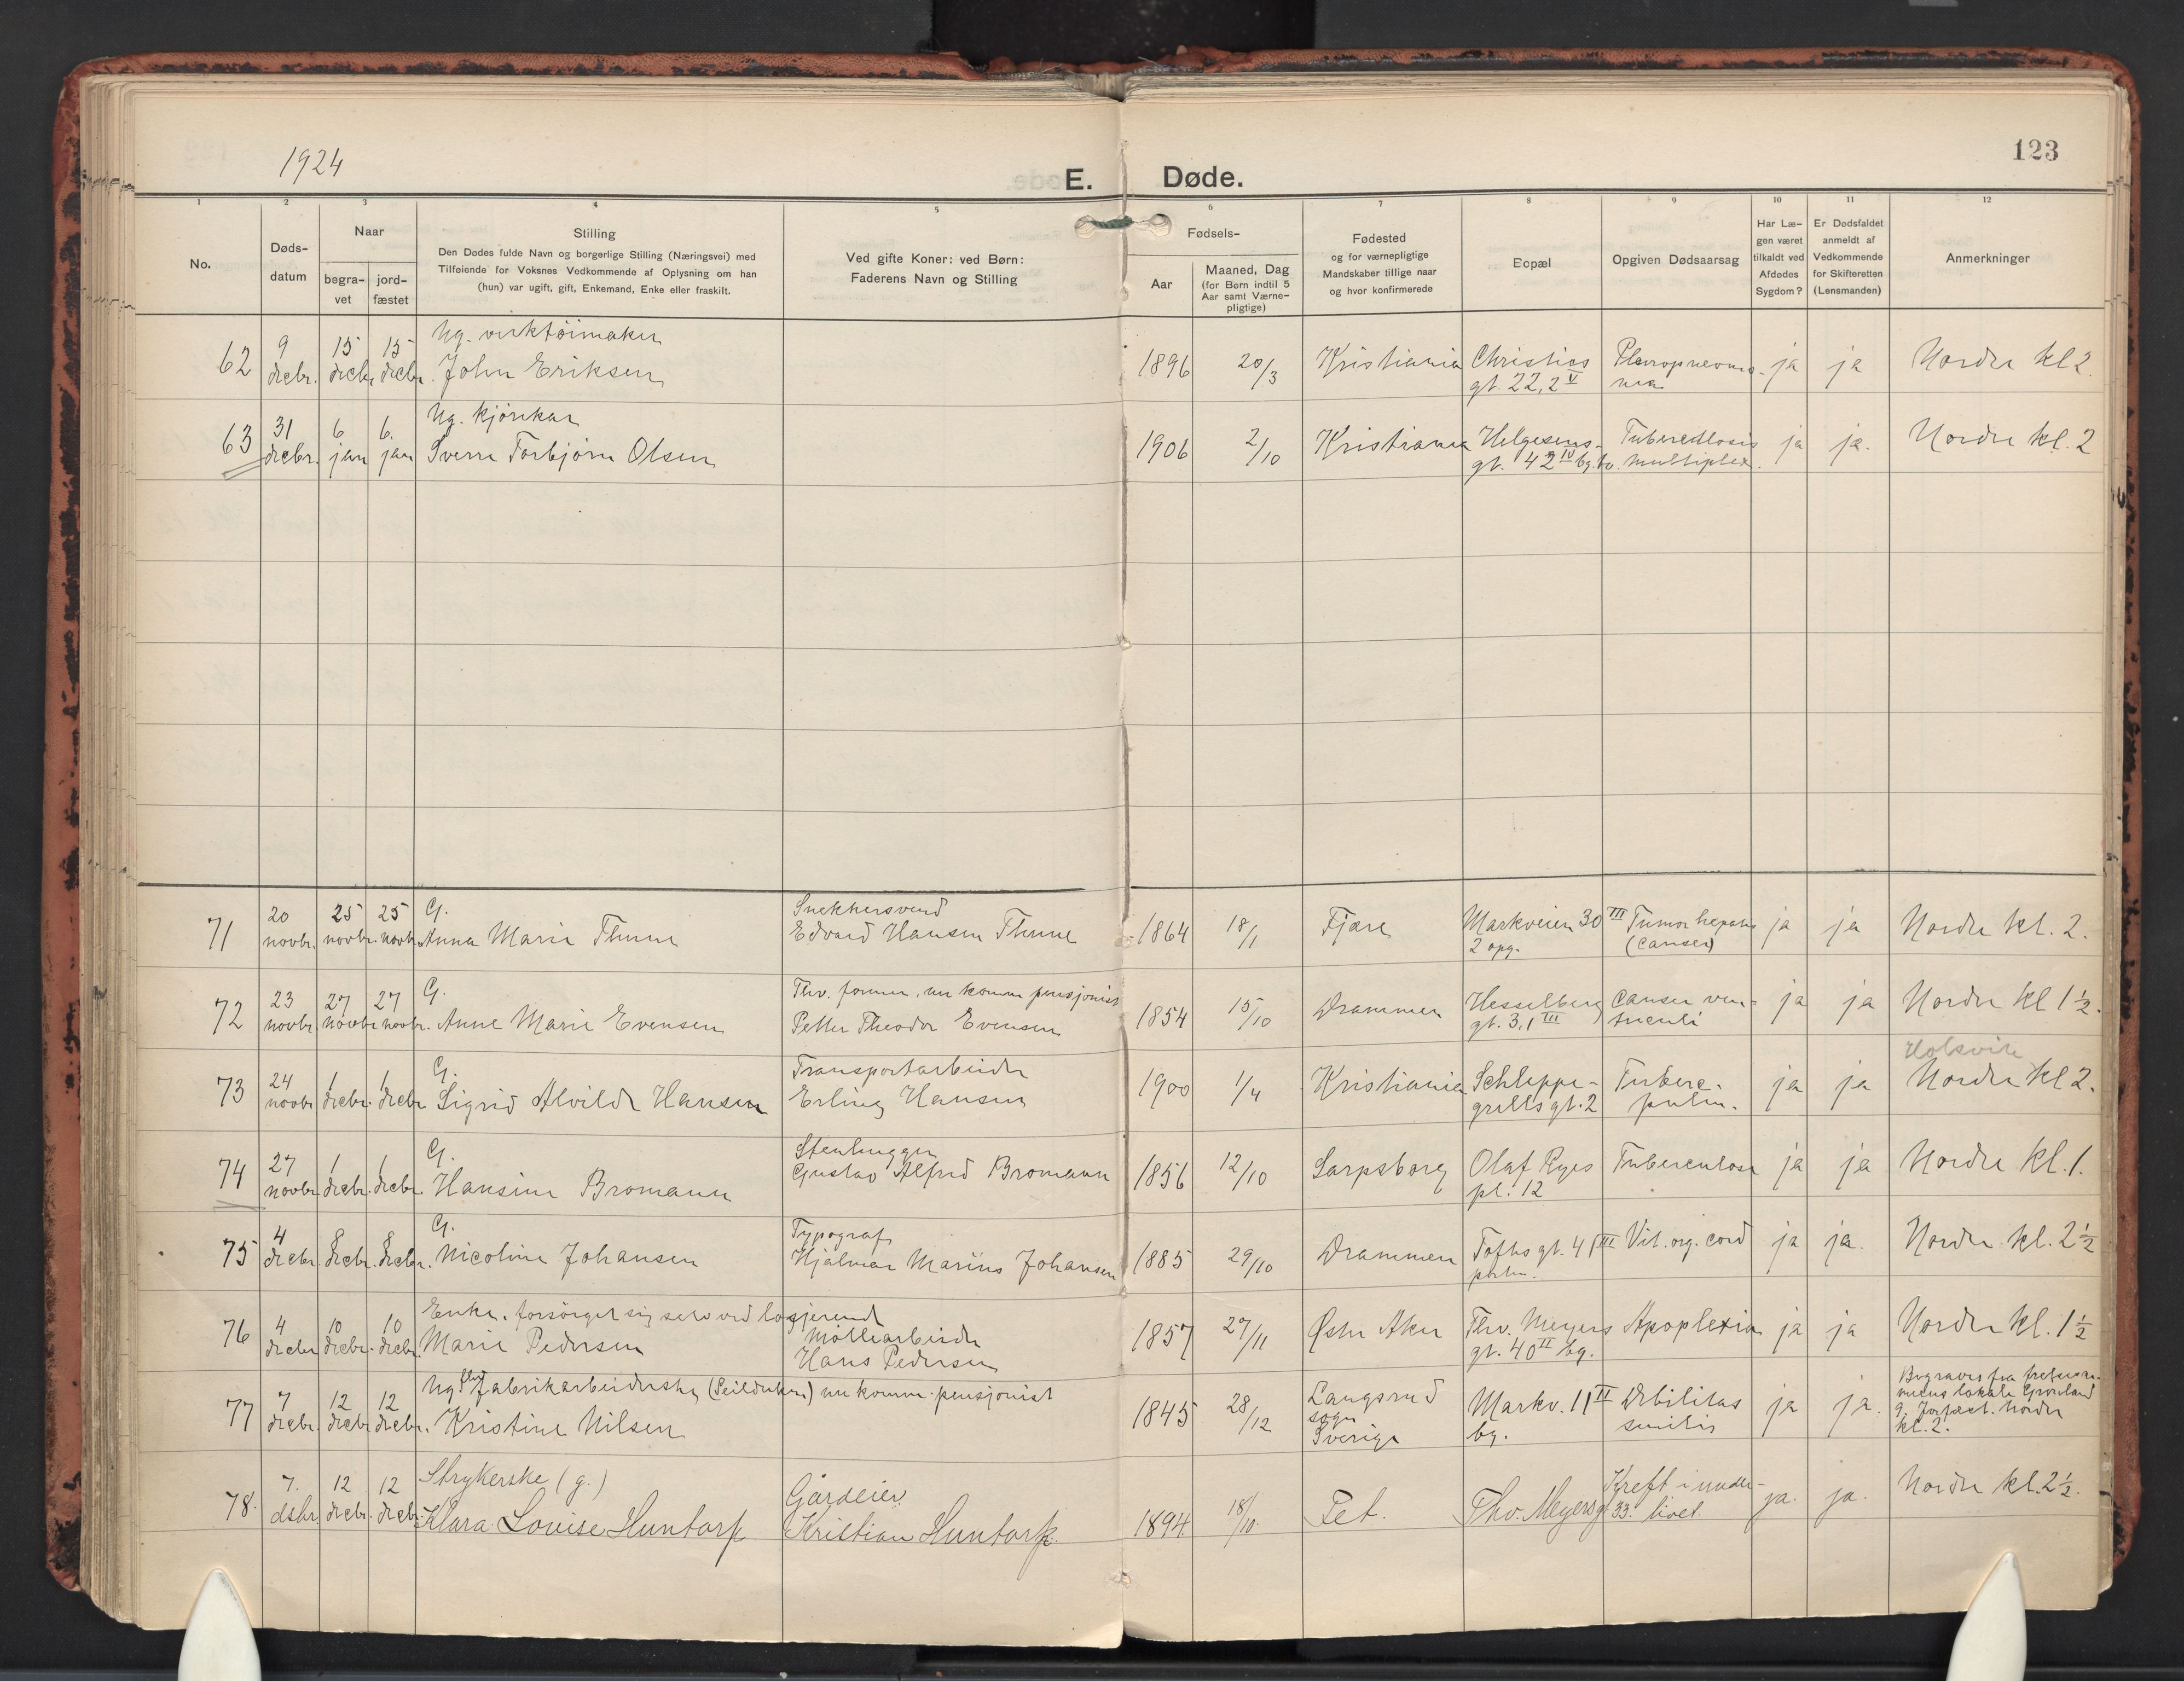 1924
E. Døde.
123
1 2 3 4 5 6 7 8 9 10 11 12
No.
Døds-
datum
Naar
begra-
vet
jord-
fæstet
Stilling
Den Dødes fulde Navn og borgerlige Stilling (Næringsvei) med
Tilføiende for Voksnes Vedkommende af Oplysning om han
(hun) var ugift, gift, Enkemand, Enke eller fraskilt.
Ved gifte Koner: ved Børn:
Faderens Navn og Stilling
Fødsels-
Aar
Maaned, Dag
(for Børn indtil 5
Aar samt Værne-
pligtige)
Fødested
og for værnepligtige
Mandskaber tillige naar
og hvor konfirmerede
Bopæl
Opgiven Dødsaarsag
Har Læ-
gen været
tilkaldt ved
Afdødes
Sygdom?
Er Dødsfaldet
anmeldt af
Vedkommende
for Skifteretten
(Lensmanden)
Anmerkninger
62
9
decbr.
15
decbr
15
decbr.
Ug. verktøimaker
John Eriksen
1896
20/3
Kristiania
Christies
gt. 22, 2 V
ja
ja
Nordre kl 2.
63
31
decbr.
6
jan
6.
jan
Ug. kjørekar
Sverre Torbjørn Olsen
1906
2/10
Kristiania
Helgesens-
gt. 42 IV bg.
Tuberculosis
multiplex.
ja
ja.
Nordre kl. 2
71
20
novbr.
25
novbr.
25
novbr.
G.
Anna Marie Thune
Snekkersvend
Edvard Hansen Thune
1864
18/1
Fjære
Markveien 30 III
2 opg.
Tumor hepatis
(cancer)
ja
ja
Nordre kl. 2.
72
23
novbr.
27
novbr
27
novbr.
G.
Anne Marie Evensen
Thv. former, nu komm pensjonist
Petter Theodor Evensen
1854
15/10
Drammen
Hesselberg
gt. 3, 1 III
Canser ven-
triculi
ja
ja
Nordre kl 1 ½.
73
24
novbr
1
decbr.
1
decbr
G.
Sigrid Alvilde Hansen
Transportarbeider
Erling Hansen
1900
1/4
Kristiania
Schleppe-
grells gt. 2
Tuberc.
pulm.
ja
ja
Nordre kl 2.
74
27
novbr
1
decbr.
1
decbr.
G.
Hansine Bromann
Stenhugger
Gustav Alfred Bromann
1856
12/10
Sarpsborg
Olaf Ryes
pl. 12
Tuberculose
ja
ja
Nordre kl. 1.
75
4
decbr.
8
decbr.
8
decbr.
G.
Nicoline Johansen
Typograf
Hjalmar Marius Johansen
1885
29/10
Drammen
Tofts gt. 41 III
Vit. org. cord
ja
ja.
Nordre kl. 2 ½
76
4
decbr
10
decbr.
10
decbr.
Enke, forsørget sig selv ved losjerende
Marie Pedersen
Møllearbeider
Hans Pedersen
1857
27/11
Østre Aker
Thv. Meyers
gt. 40 II bg.
Apoplexia
ja
ja
Nordre kl. 1 ½
77
7
decbr.
12
decbr.
12
decbr.
Ug. fhv. fabrikarbeiderske (Seilduken) nu komm. pensjonist
Kristine Nilsen
1845
28/12
Langsrud
sogn
Sverige
Markv. 11 II
bg.
Debilitas
senilis
ja
ja.
Begraves fra frelsesar-
meens lokale Grønland
9. Jordfæst. Nordre
kl. 2.
78.
7.
dsbr.
12
decbr.
12
decbr.
Strykerske (g.)
Klara Lovise Huntorp
Gårdeier
Kristian Huntorp.
1894
18/10.
Fet.
Thv. Meyersg. 33.
Kreft i under-
livet.
ja.
ja.
Nordre kl. 2 ½.